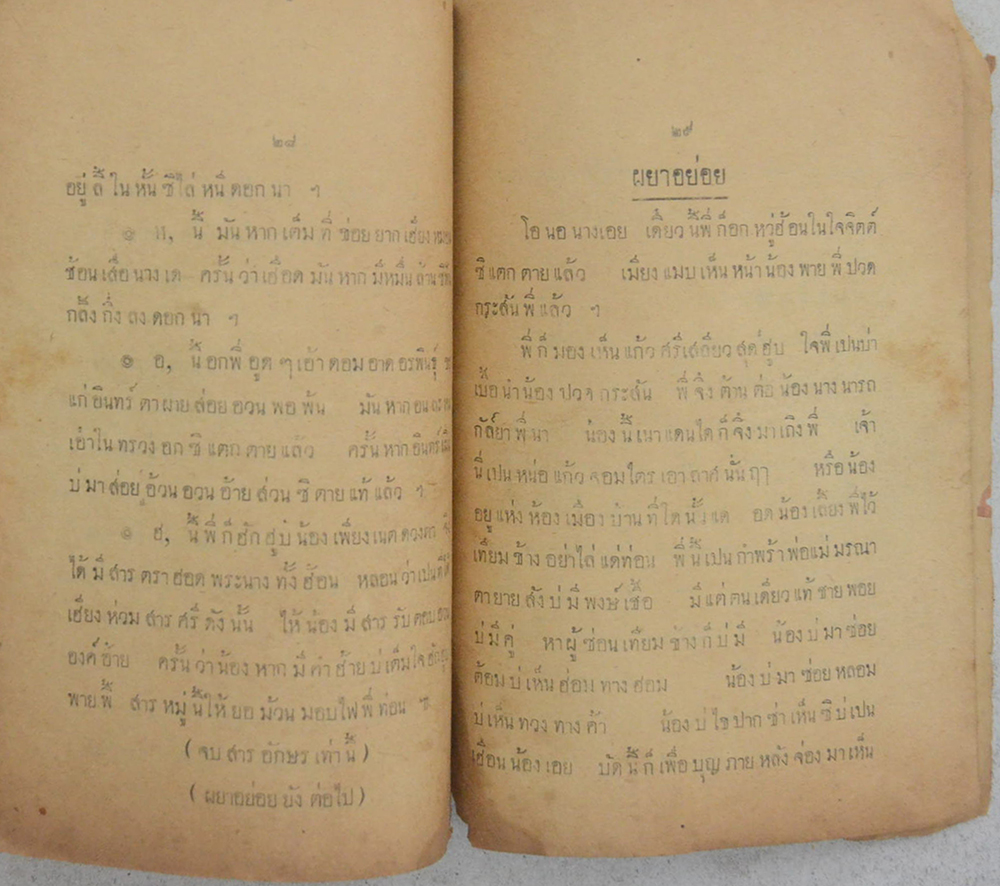 ๒๘
อยู่ ลี้ ใน หั้น ซิ ไล่ หนี ดอก นา ฯ
๏ ห, นี้ มัน หาก เต็ม ที่ ซ่อย ยาก เฮี่ยง
ซ้อน เสื่อ นาง เด ครั้น ว่า เฮือด มัน หาก มี หมื่น ล้าน
กลิ้ง กิ่ง ลง ดอก นา ฯ
๏ อ, นี้ อกพี่ อูด ๆ เอ้า ดอม อาด อรพินธุ์
แก่ อินทร์ ตา ผาย ส่อย อวน พอ พ้น มัน หาก
เอ่าใน ทรวง อก ซิ แตก ตาย แล้ว ครั้น หาก อินทร์
บ่ มา ส่อย อู้วน อวน อ้าย ส่วน ซิ ตาย แท้ แล้ว ฯ
๏ ฮ, นี้ พี่ ก็ ฮัก ฮูบ น้อง เพียง เนต ดวงตา
ได้ มี สาร ตรา ฮอด พระนาง ทั้ง ฮ้อน หลอน ว่า เป็น
เฮี่ยง ห่วม สาร ศรี ดัง นั้น ให้ น้อง มี สาร รับ ตอบ
องค์ อ้าย ครั้น ว่า น้อง หาก มี คำ ฮ้าย บ่ เต็ม ใจ
พาย พี้ สาร หมู่ นี้ ให้ ยอ ม้วน มอบ ไฟ พี่ ท่อน
( จบ สาร อักษร เท่า นี้ )
( ผยาอย่อย ยัง ต่อไป )
๒๙
ผยาอย่อย
โอ นอ นางเอย เดี๋ยว นี้พี่ ก็อก หวู่ฮ้อนในใจจิตต์
ซิ แตก ตาย แล้ว เมียง แมบ เห็น หน้า น้อง พาย พี่ ปวด
กระสัน พี่ แล้ว ฯ
พี่ ก็ มอง เห็น แก้ว ศรีเสลียว สุด ฮูบ ใจพี่ เปนบ่า
เบื้อ นำ น้อง ปวด กระสัน พี่ จึ่ง ต้าน ต่อ น้อง นาง นารถ
กัล์ยา พี่ นา น้อง นี้ เนา แดน ใด ก็ จึ่ง มา เถิง พี่ เจ้า
นี่ เปน หน่อ แก้ว จอม ไตร เอา ถาศ นั่น ฤๅ หรือ น้อง
อยู่ แห่ง ห้อง เมือง บ้าน ที่ ใด นั้น แด อด น้อง เลี้ยง พี่ ไว้
เทียม ข้าง อย่า ไล่ แด่ ท่อน พี่ นี้ เปน กำพร้า พ่อ แม่ มรณา
ตา ยาย สัง บ่ มี พงษ์ เชื้อ มี แต่ ตน เดียว แท้ ชาย พอย
บ่ มี คู่ หา ผู้ ซ่อน เทียม ข้าง ก็ บ่ มี น้อง บ่ มา ซ่อย
ต้อม บ่ เห็น ฮ่อม ทาง ฮ่อม น้อง บ่ มา ซ่อย หลอม
บ่ เห็น ทวง ทาง ค้า น้อง บ่ ไข ปาก ซ่า เห็น ซิ บ่ เปน
เฮือน น้อง เอย บัด นี้ ก็ เพื่อ บุญ ภาย หลัง จ่อง มา เห็น